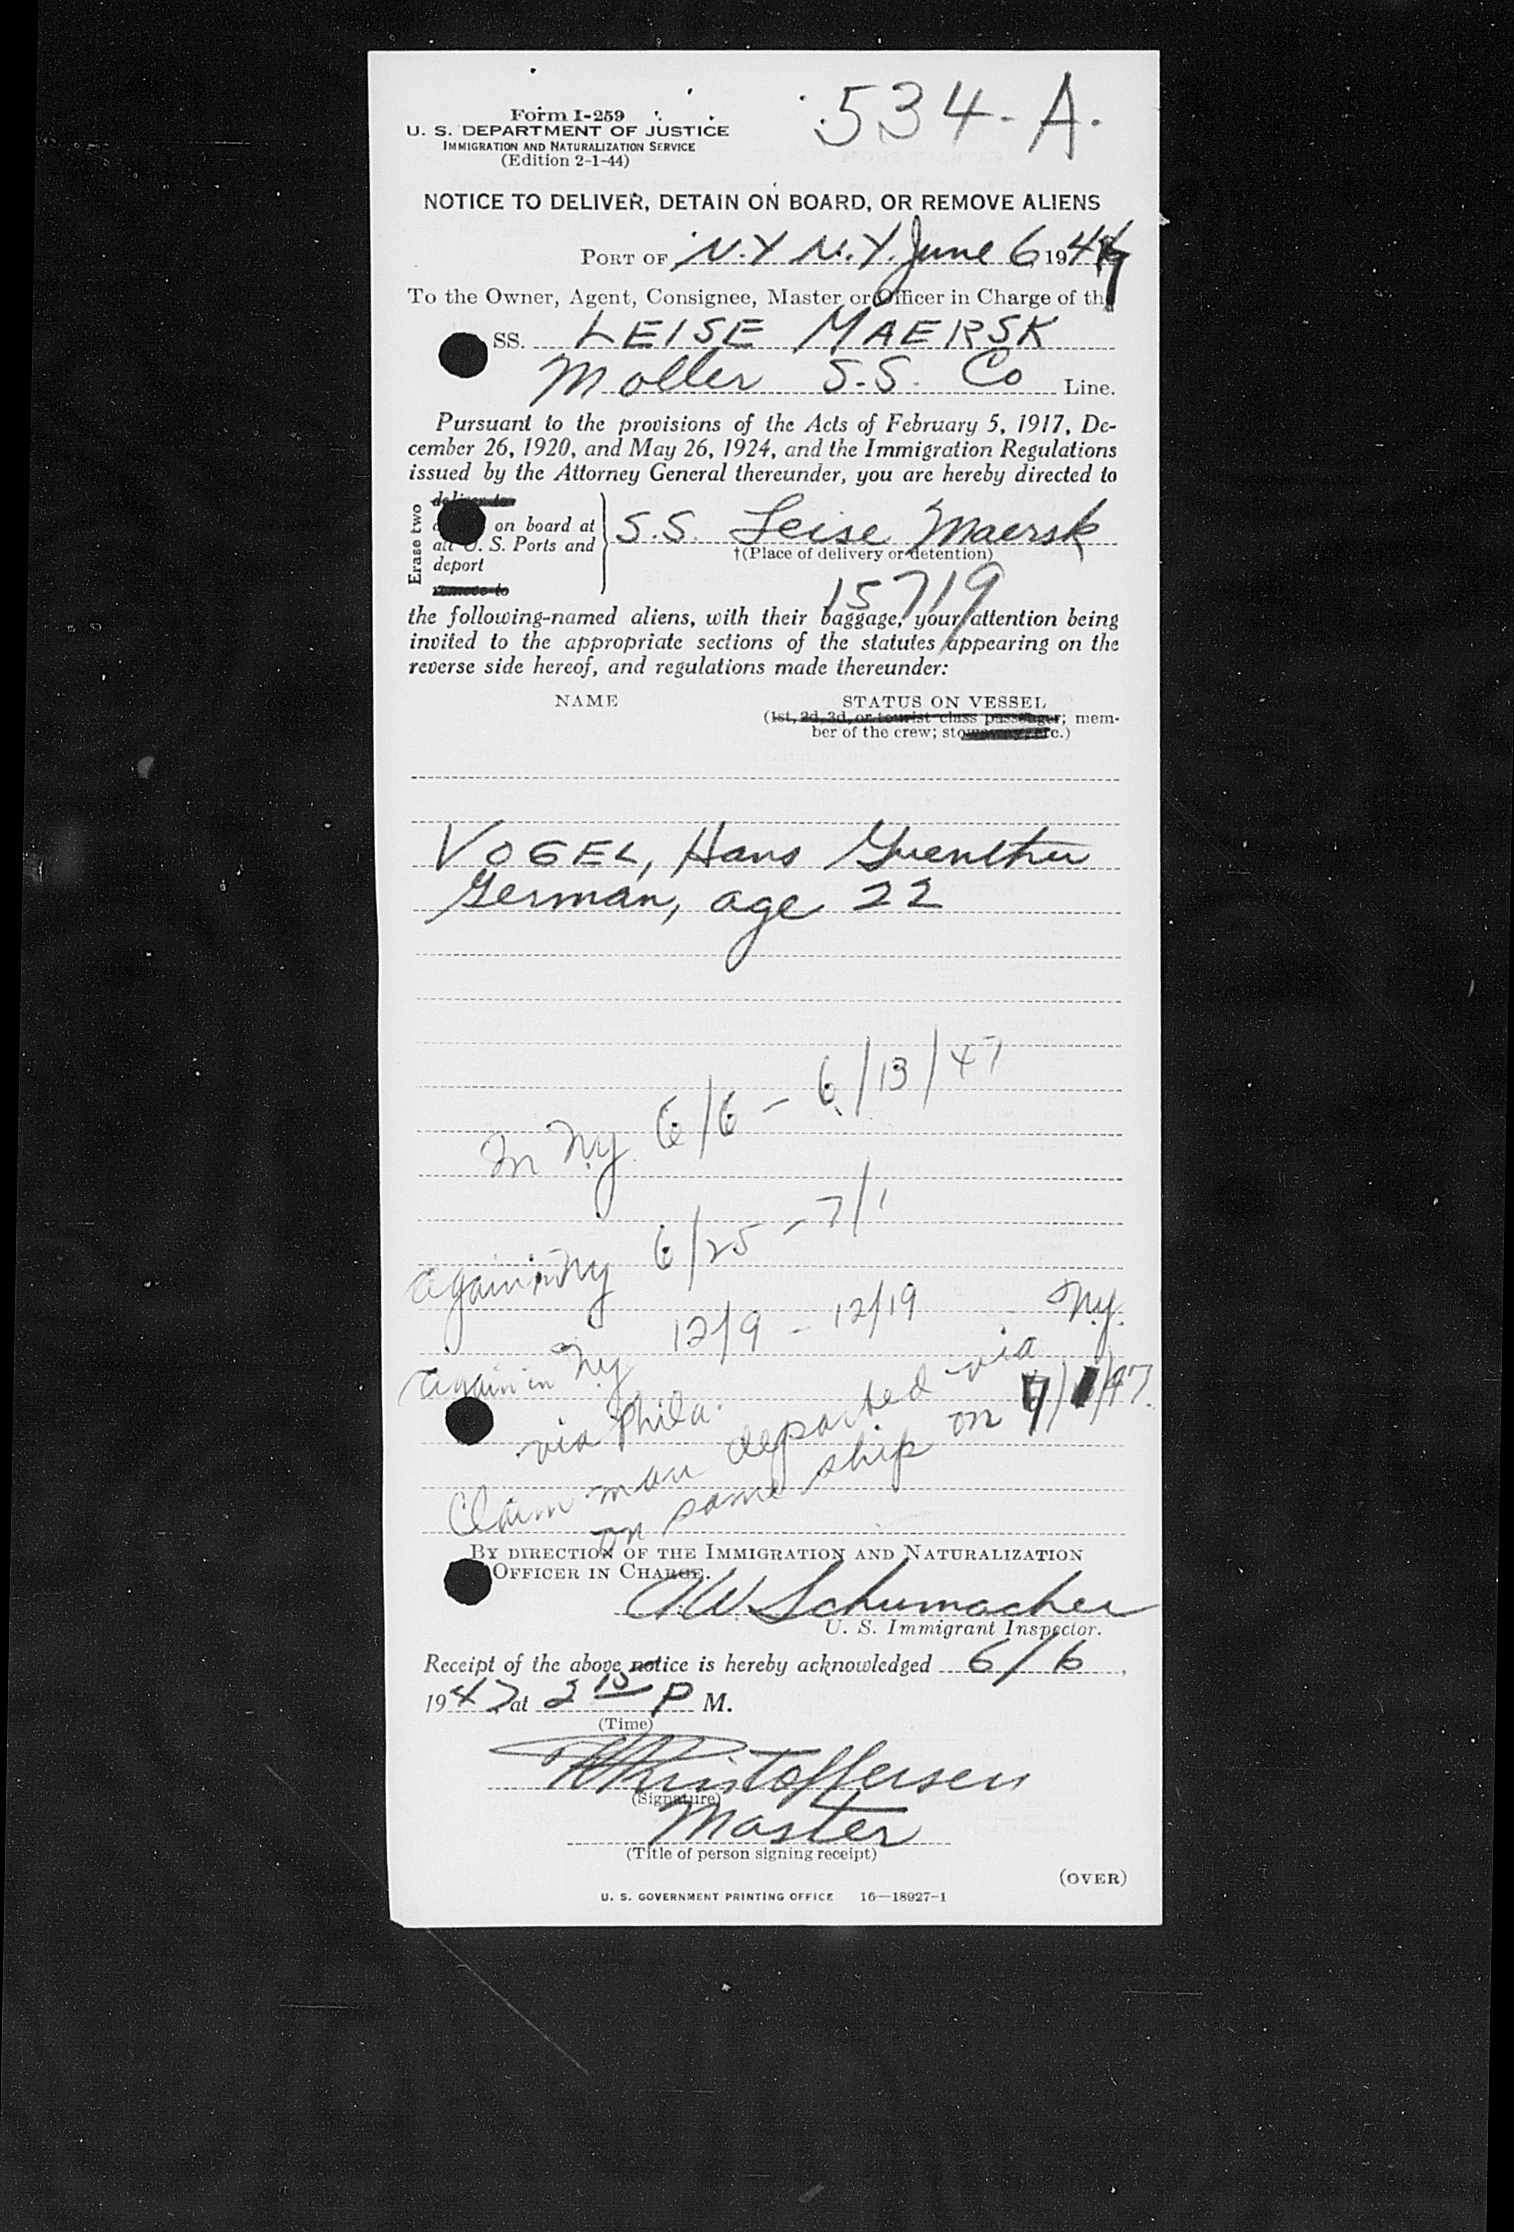 Form I-259
U. S. DEPARTMENT OF JUSTICE
IMMIGRATION AND NATURALIZATION SERVICE
(Edition 2-1-44)
534-A.
NOTICE TO DELIVER, DETAIN ON BOARD, OR REMOVE ALIENS
PORT OF N.Y N.Y. June 6, 1947
To the Owner, Agent, Consignee, Master or Officer in Charge of the
SS. LEISE MAERSK
Moller S.S. Co Line.
Pursuant to the provisions of the Acts of February 5, 1917, De-
cember 26, 1920, and May 26, 1924, and the Immigration Regulations
issued by the Attorney General thereunder, you are hereby directed to
Erase two
deliver to
on board at
all U. S. Ports and
deport
remove to
S.S. Leise Maersk
†(Place of delivery or detention)
15719
the following-named aliens, with their baggage, your attention being
invited to the appropriate sections of the statutes appearing on the
reverse side hereof, and regulations made thereunder:
NAME
STATUS ON VESSEL
(1st, 2d, 3d, or tourist class passenger; mem-
ber of the crew; stowaway; etc.)
VOGEL, Hans Guenther
German, age 22
In N.Y. 6/6 - 6/13/47
again in NY 6/25 - 7/1
again in N.Y 12/9 - 12/19
via Phila.
Claim man departed via N.Y.
on same ship on 7/1/47.
BY DIRECTION OF THE IMMIGRATION AND NATURALIZATION
OFFICER IN CHARGE.
Schumacher
U. S. Immigrant Inspector.
Receipt of the above notice is hereby acknowledged 6/6,
1947, at 2 15 P M.
(Time)
Kristoffersen
(Signature)
Master
(Title of person signing receipt)
(OVER)
U. S. GOVERNMENT PRINTING OFFICE 16—18927-1